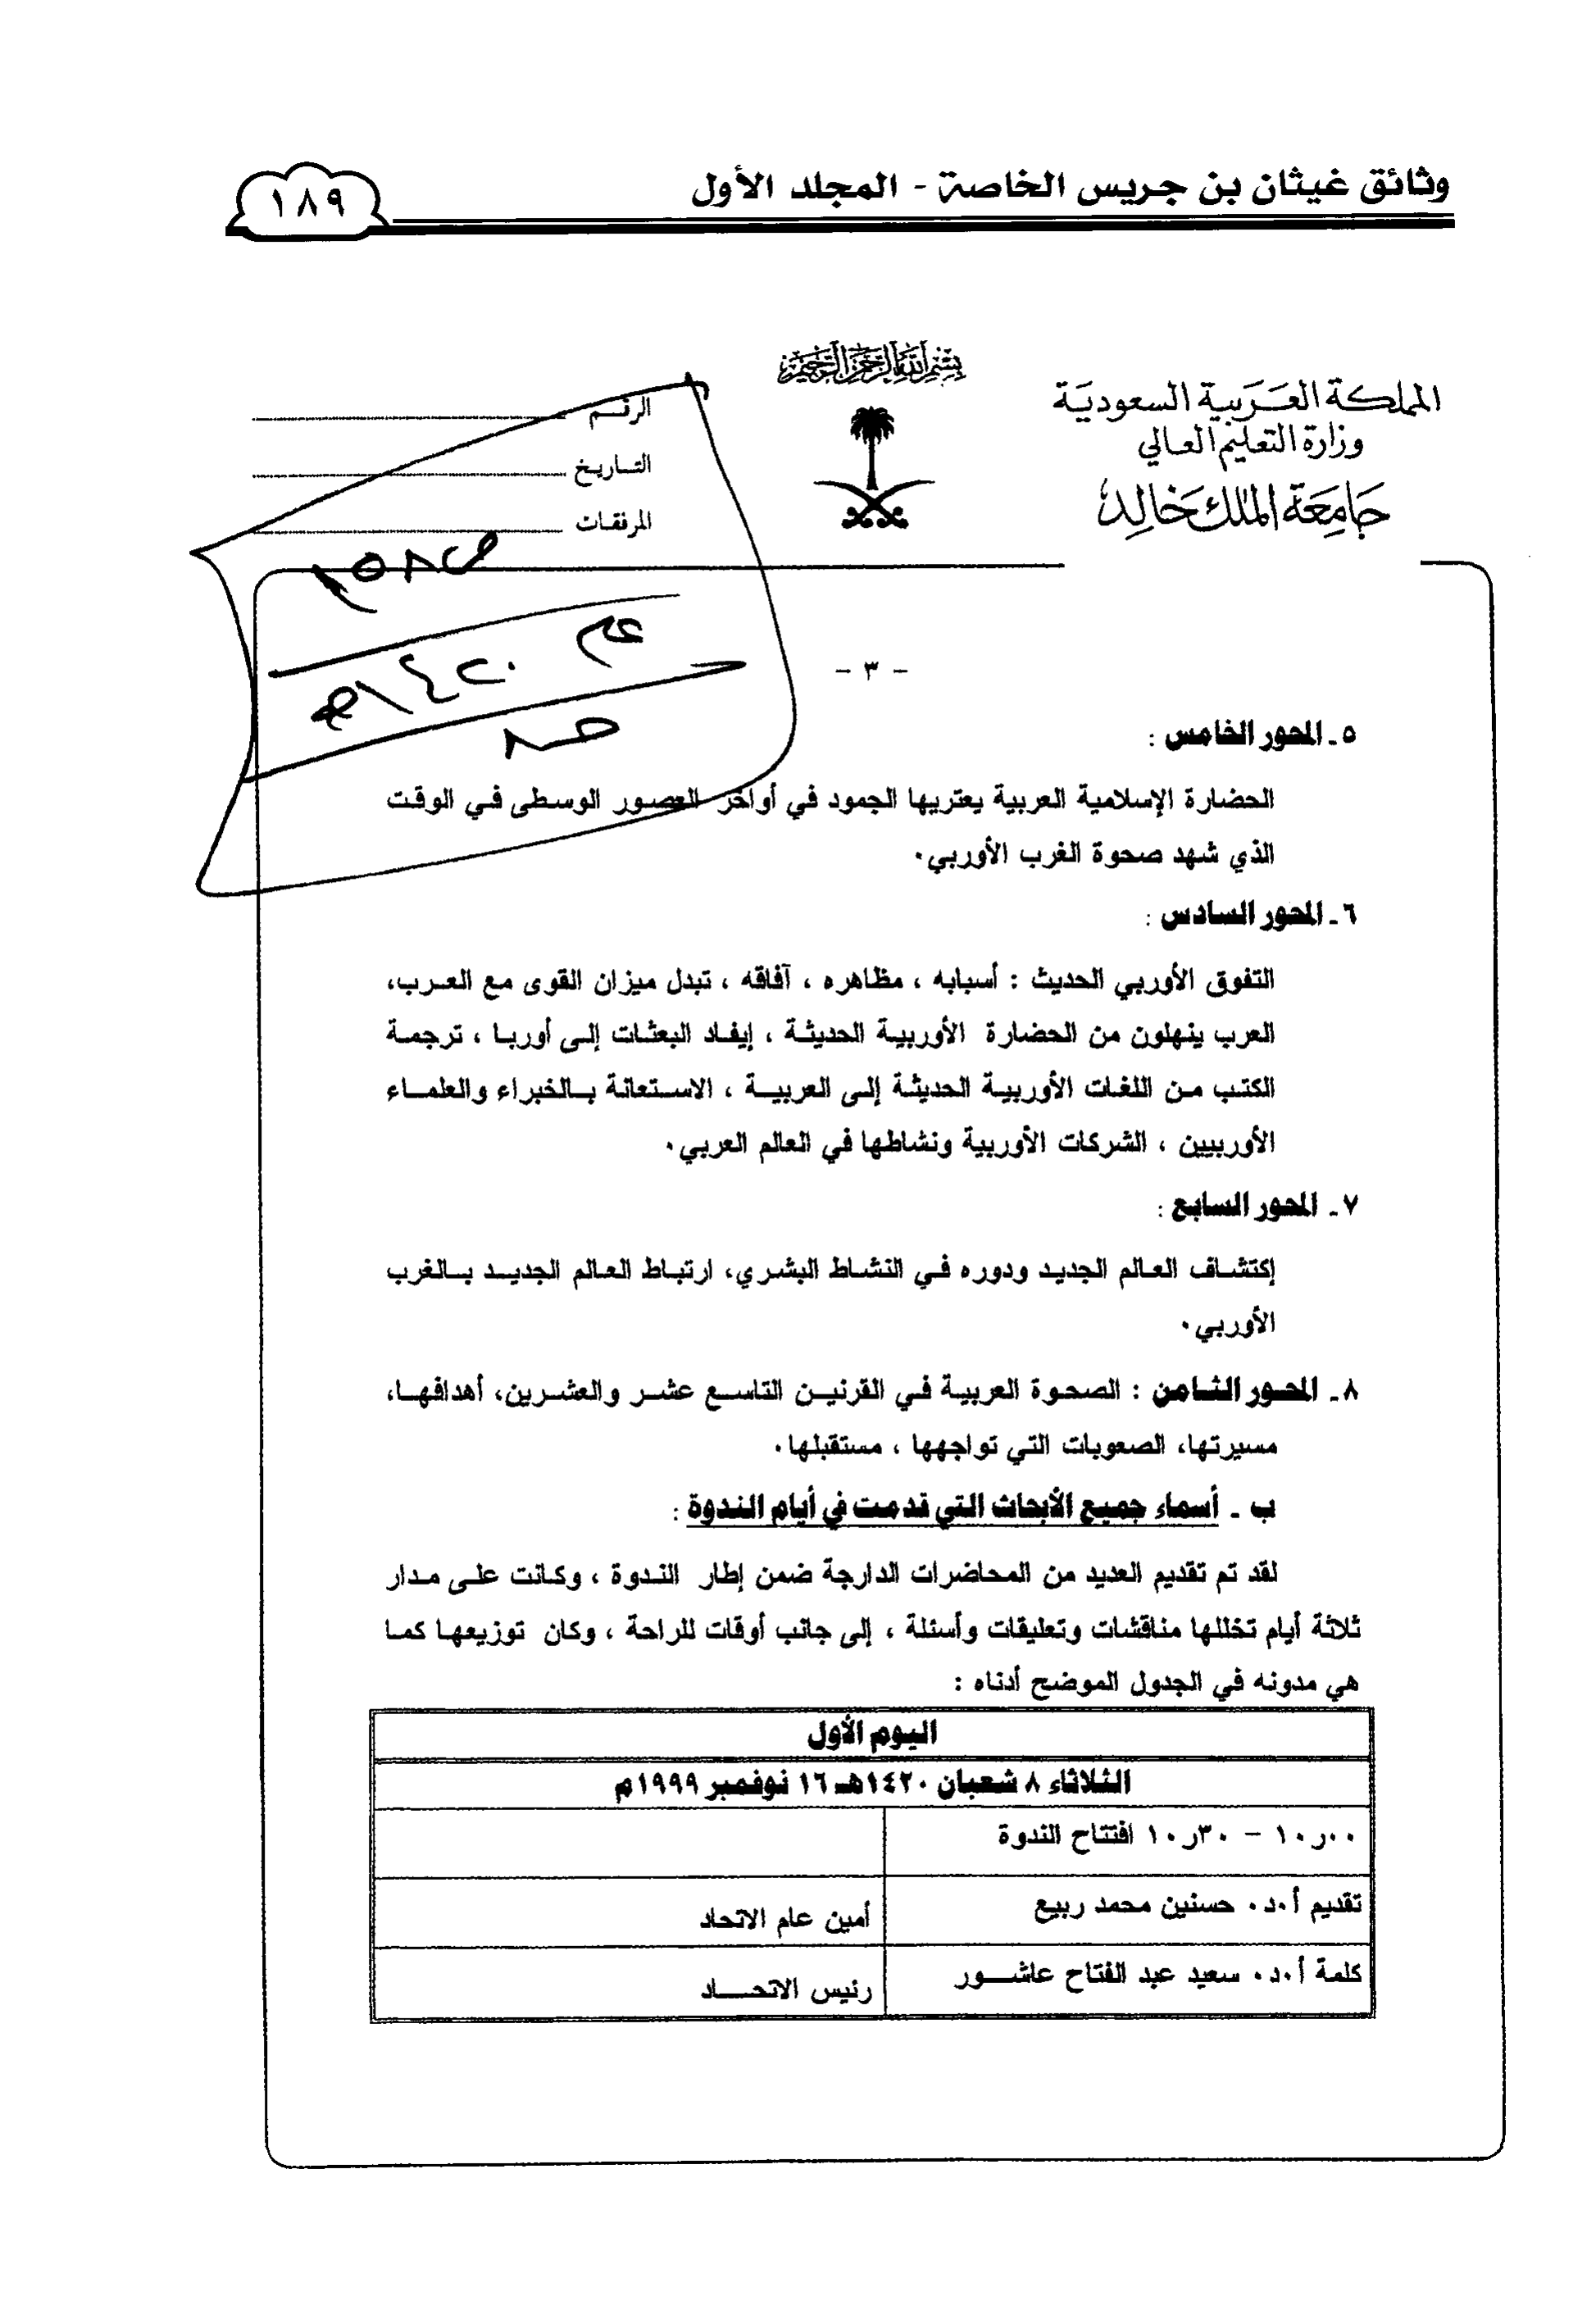 وثائق غيثان بن جريس الخاصة - المجلد الأول
١٨٩
بسم الله الرحمن الرحيم
المملكة العربية السعودية
وزارة التعليم العالي
جامعة الملك خالد
الرقم
التاريخ
المرفقات
عام ١٤٢٠هـ
- ٣ -
٥ـ المحور الخامس :
الحضارة الإسلامية العربية يعتريها الجمود في أواخر العصور الوسطى في الوقت
الذي شهد صحوة الغرب الأوربي٠
٦ـ المحور السادس :
التفوق الأوربي الحديث : أسبابه ، مظاهره ، آفاقه ، تبدل ميزان القوى مع العرب،
العرب ينهلون من الحضارة الأوربية الحديثة ، إيفاد البعثات إلى أوربا ، ترجمة
الكتب من اللغات الأوربية الحديثة إلى العربية ، الاستعانة بالخبراء والعلماء
الأوربيين ، الشركات الأوربية ونشاطها في العالم العربي٠
٧ـ المحور السابع :
إكتشاف العالم الجديد ودوره في النشاط البشري، ارتباط العالم الجديد بالغرب
الأوربي٠
٨ـ المحور الثامن : الصحوة العربية في القرنين التاسع عشر والعشرين، أهدافها،
مسيرتها، الصعوبات التي تواجهها ، مستقبلها٠
ب ـ أسماء جميع الأبحاث التي قدمت في أيام الندوة :
لقد تم تقديم العديد من المحاضرات الدارجة ضمن إطار الندوة ، وكانت على مدار
ثلاثة أيام تخللها مناقشات وتعليقات وأسئلة ، إلى جانب أوقات للراحة ، وكان توزيعها كما
هي مدونه في الجدول الموضح أدناه :
اليوم الأول
الثلاثاء ٨ شعبان ١٤٢٠هـ ١٦ نوفمبر ١٩٩٩م
١٠ر٠٠ – ١٠ر٣٠ افتتاح الندوة
تقديم أ٠د٠ حسنين محمد ربيع
أمين عام الاتحاد
كلمة أ٠د٠ سعيد عبد الفتاح عاشور
رئيس الاتحاد